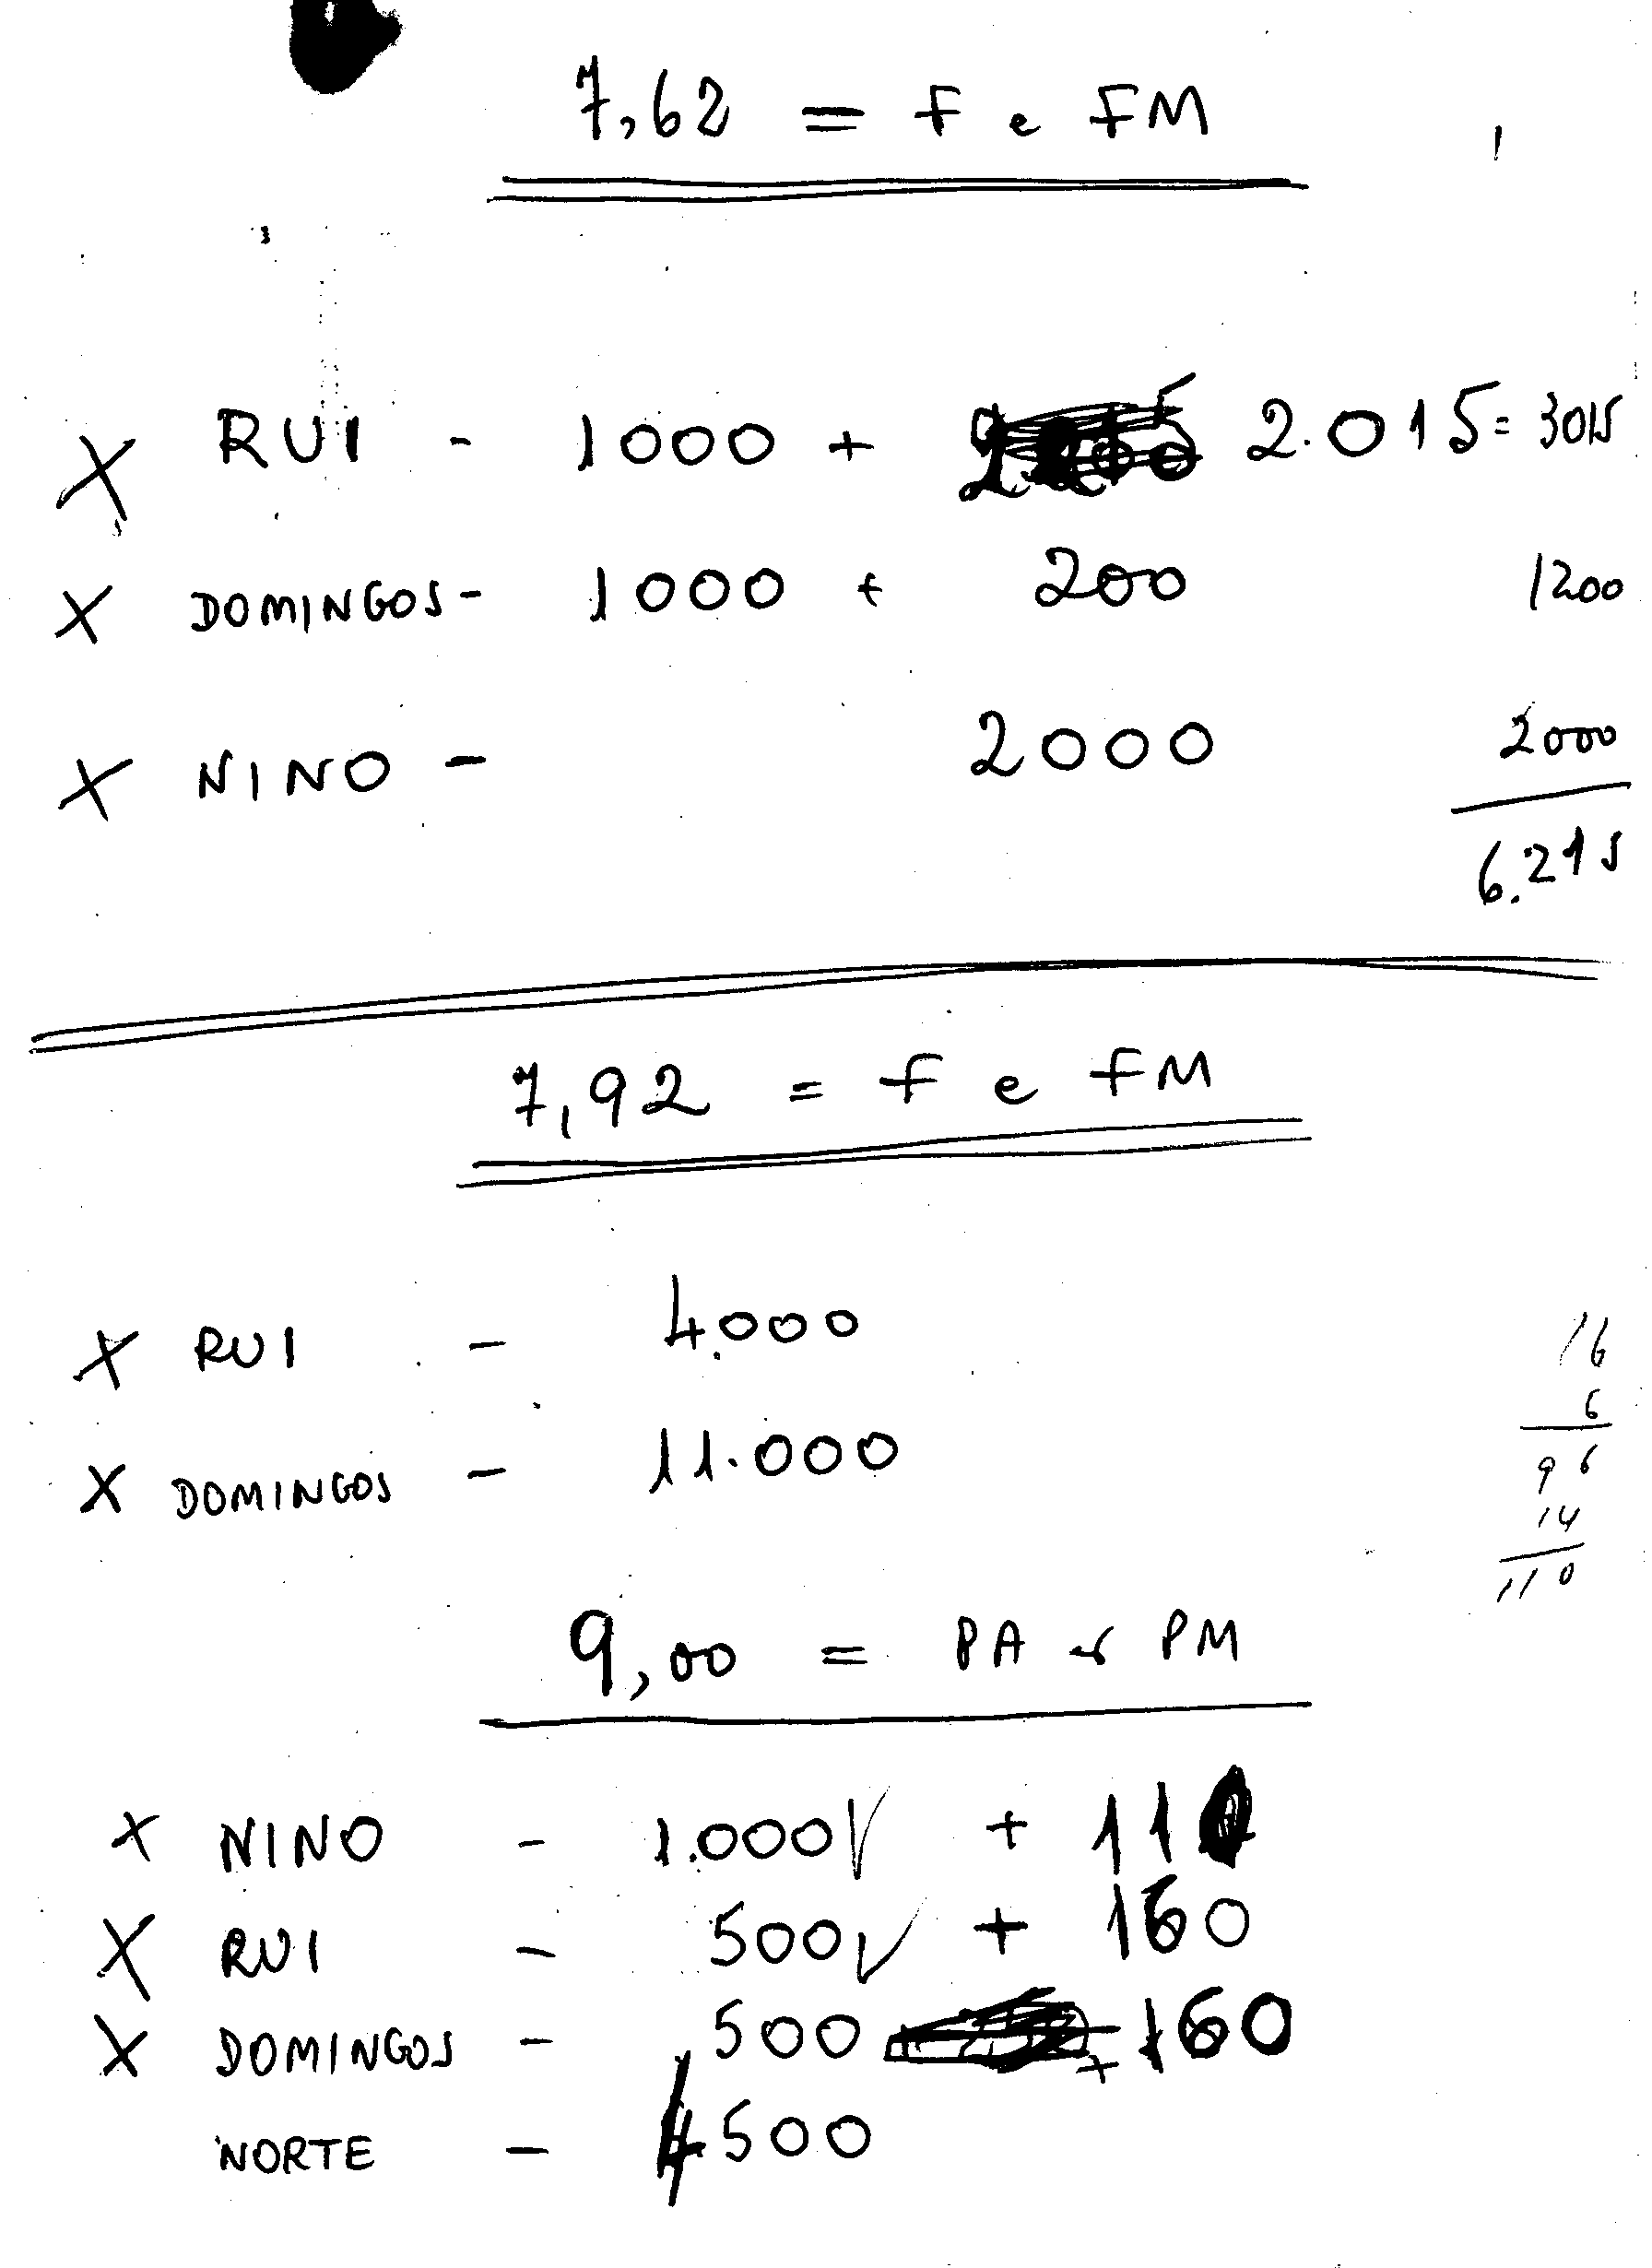 7,62 = F e FM
X RUI - 1000 + 2.015 = 3015
X DOMINGOS - 1000 + 200 1200
X NINO - 2000 2000
6.215
7,92 = F e FM
X RUI - 4.000
X DOMINGOS - 11.000
16
6
96
14
110
9,00 = PA e PM
X NINO - 1.000 V + 110
X RUI - 500 V + 160
X DOMINGOS - 500 + 160
NORTE - 500